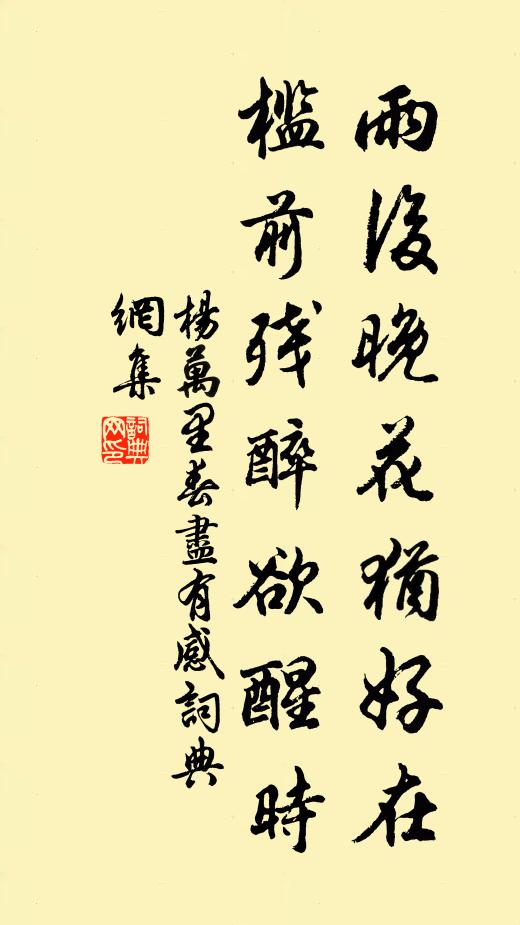 雨後晚花猶好在
檻前残醉欲醒時
楊萬里春盡有感詞典
網集
詞典
网印